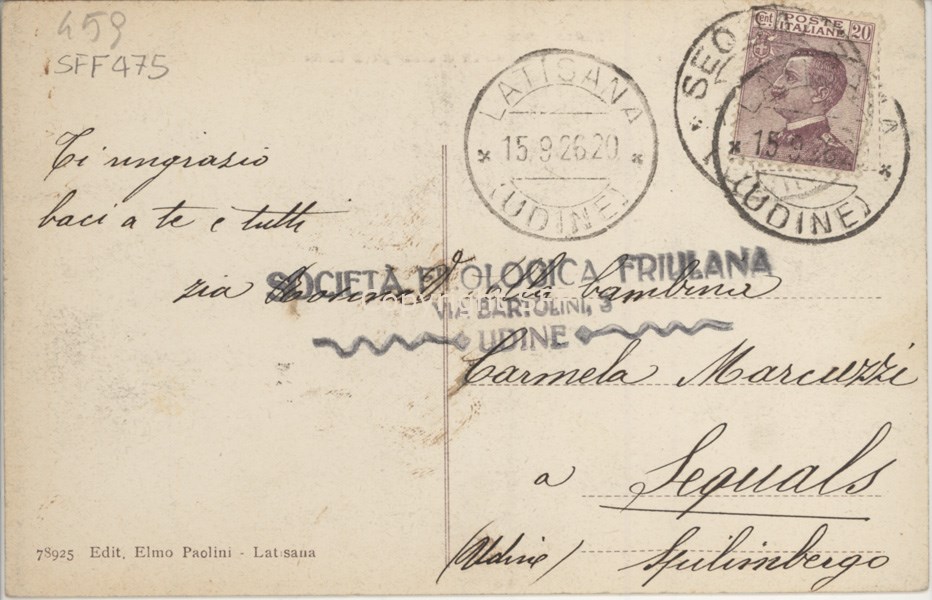 459
SFF475
Cent. POSTE ITALIANE 20
LATISANA
15.9.26.20
(UDINE)
15.9.26
(UDINE)
Ti ringrazio
baci a te e tutti
zia
SOCIETÀ FILOLOGICA FRIULANA
VIA BARTOLINI, 3
UDINE
alla bambina
Carmela Marcuzzi
a Sequals
(Udine) Spilimbergo
78925 Edit. Elmo Paolini - Latisana